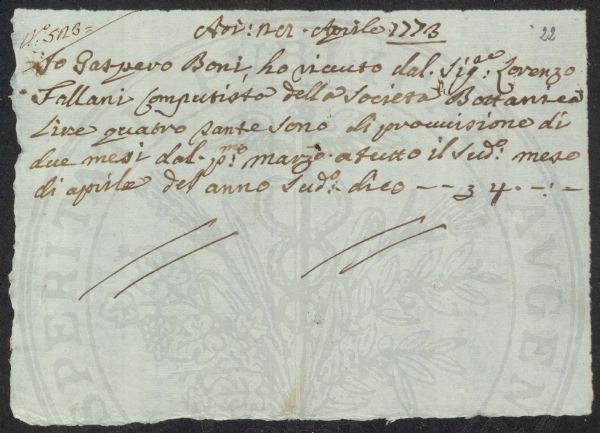 N°. 5123=
Adi: Aprile 1773
22
Io Gaspero Boni, ho riceuto dal. Sig:re Lorenzo
Fallani Computista della Societa Bottanica
Lire quatro tante sono di provvisione di
due mesi dal. p:mo marzo. a tutto il Sud:o mese
di aprile del anno Sud:o dico - - - 4 . -:-